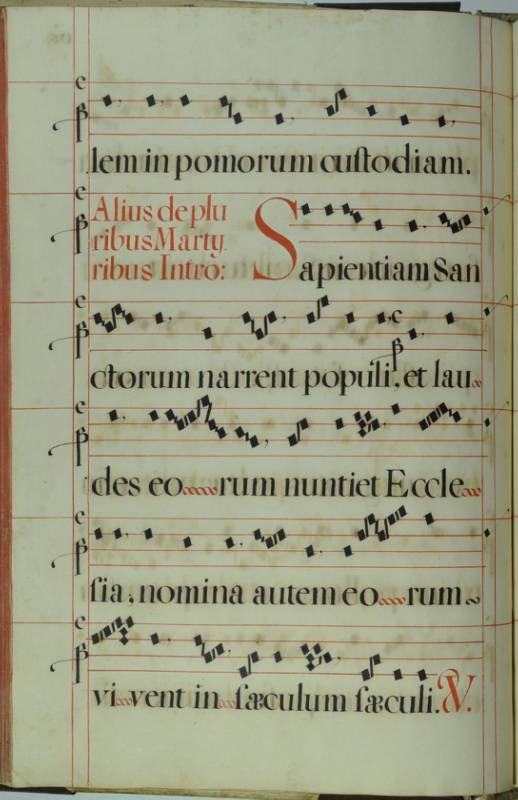 lem in pomorum cuſtodiam.
Alius de plu
ribus Marty
ribus Intro:
Sapientiam San
ctorum narrent populi, et lau
des eo rum nuntiet Eccle
ſia, nomina autem eo rum
vi vent in ſæculum ſæculi. ℣.